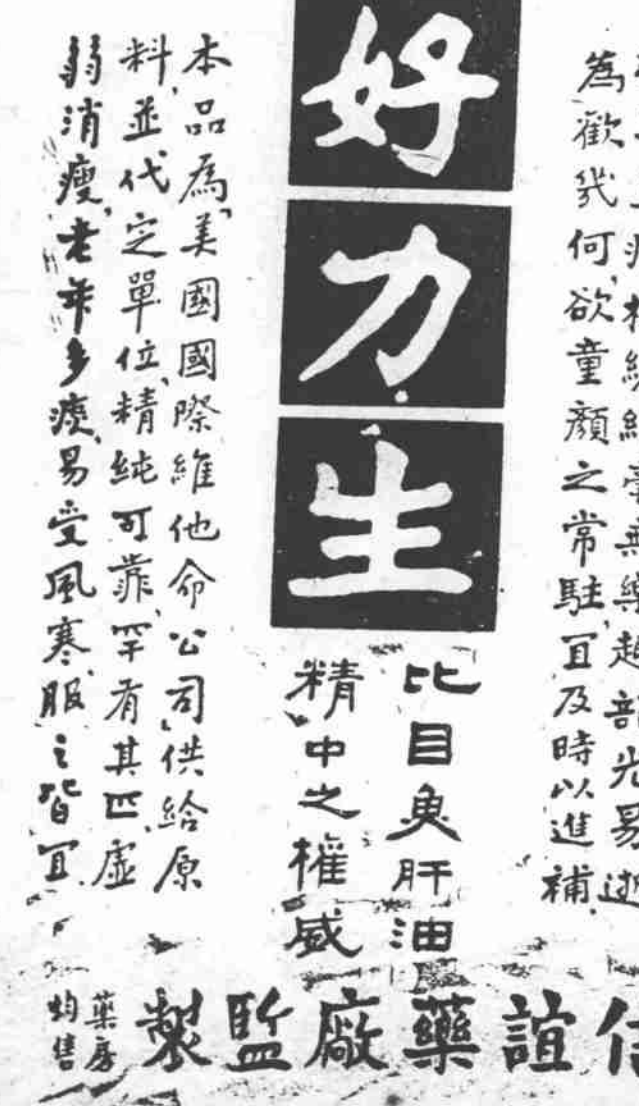 無樂趣韶光易逝
為歡幾何、欲童顏之常駐、宜及時以進補.
好力生
比目魚肝油
精中之權威
本品為、美國國際維他命公司、供給原
料、並代定單位、精純可靠、罕有其匹、虛
弱消瘦、老年多痰、易受風寒、服之皆宜.
信誼藥廠監製
藥房
均售